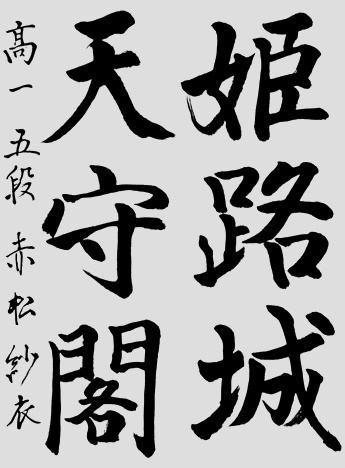 姫路城
天守閣
高一 五段 赤松紗衣